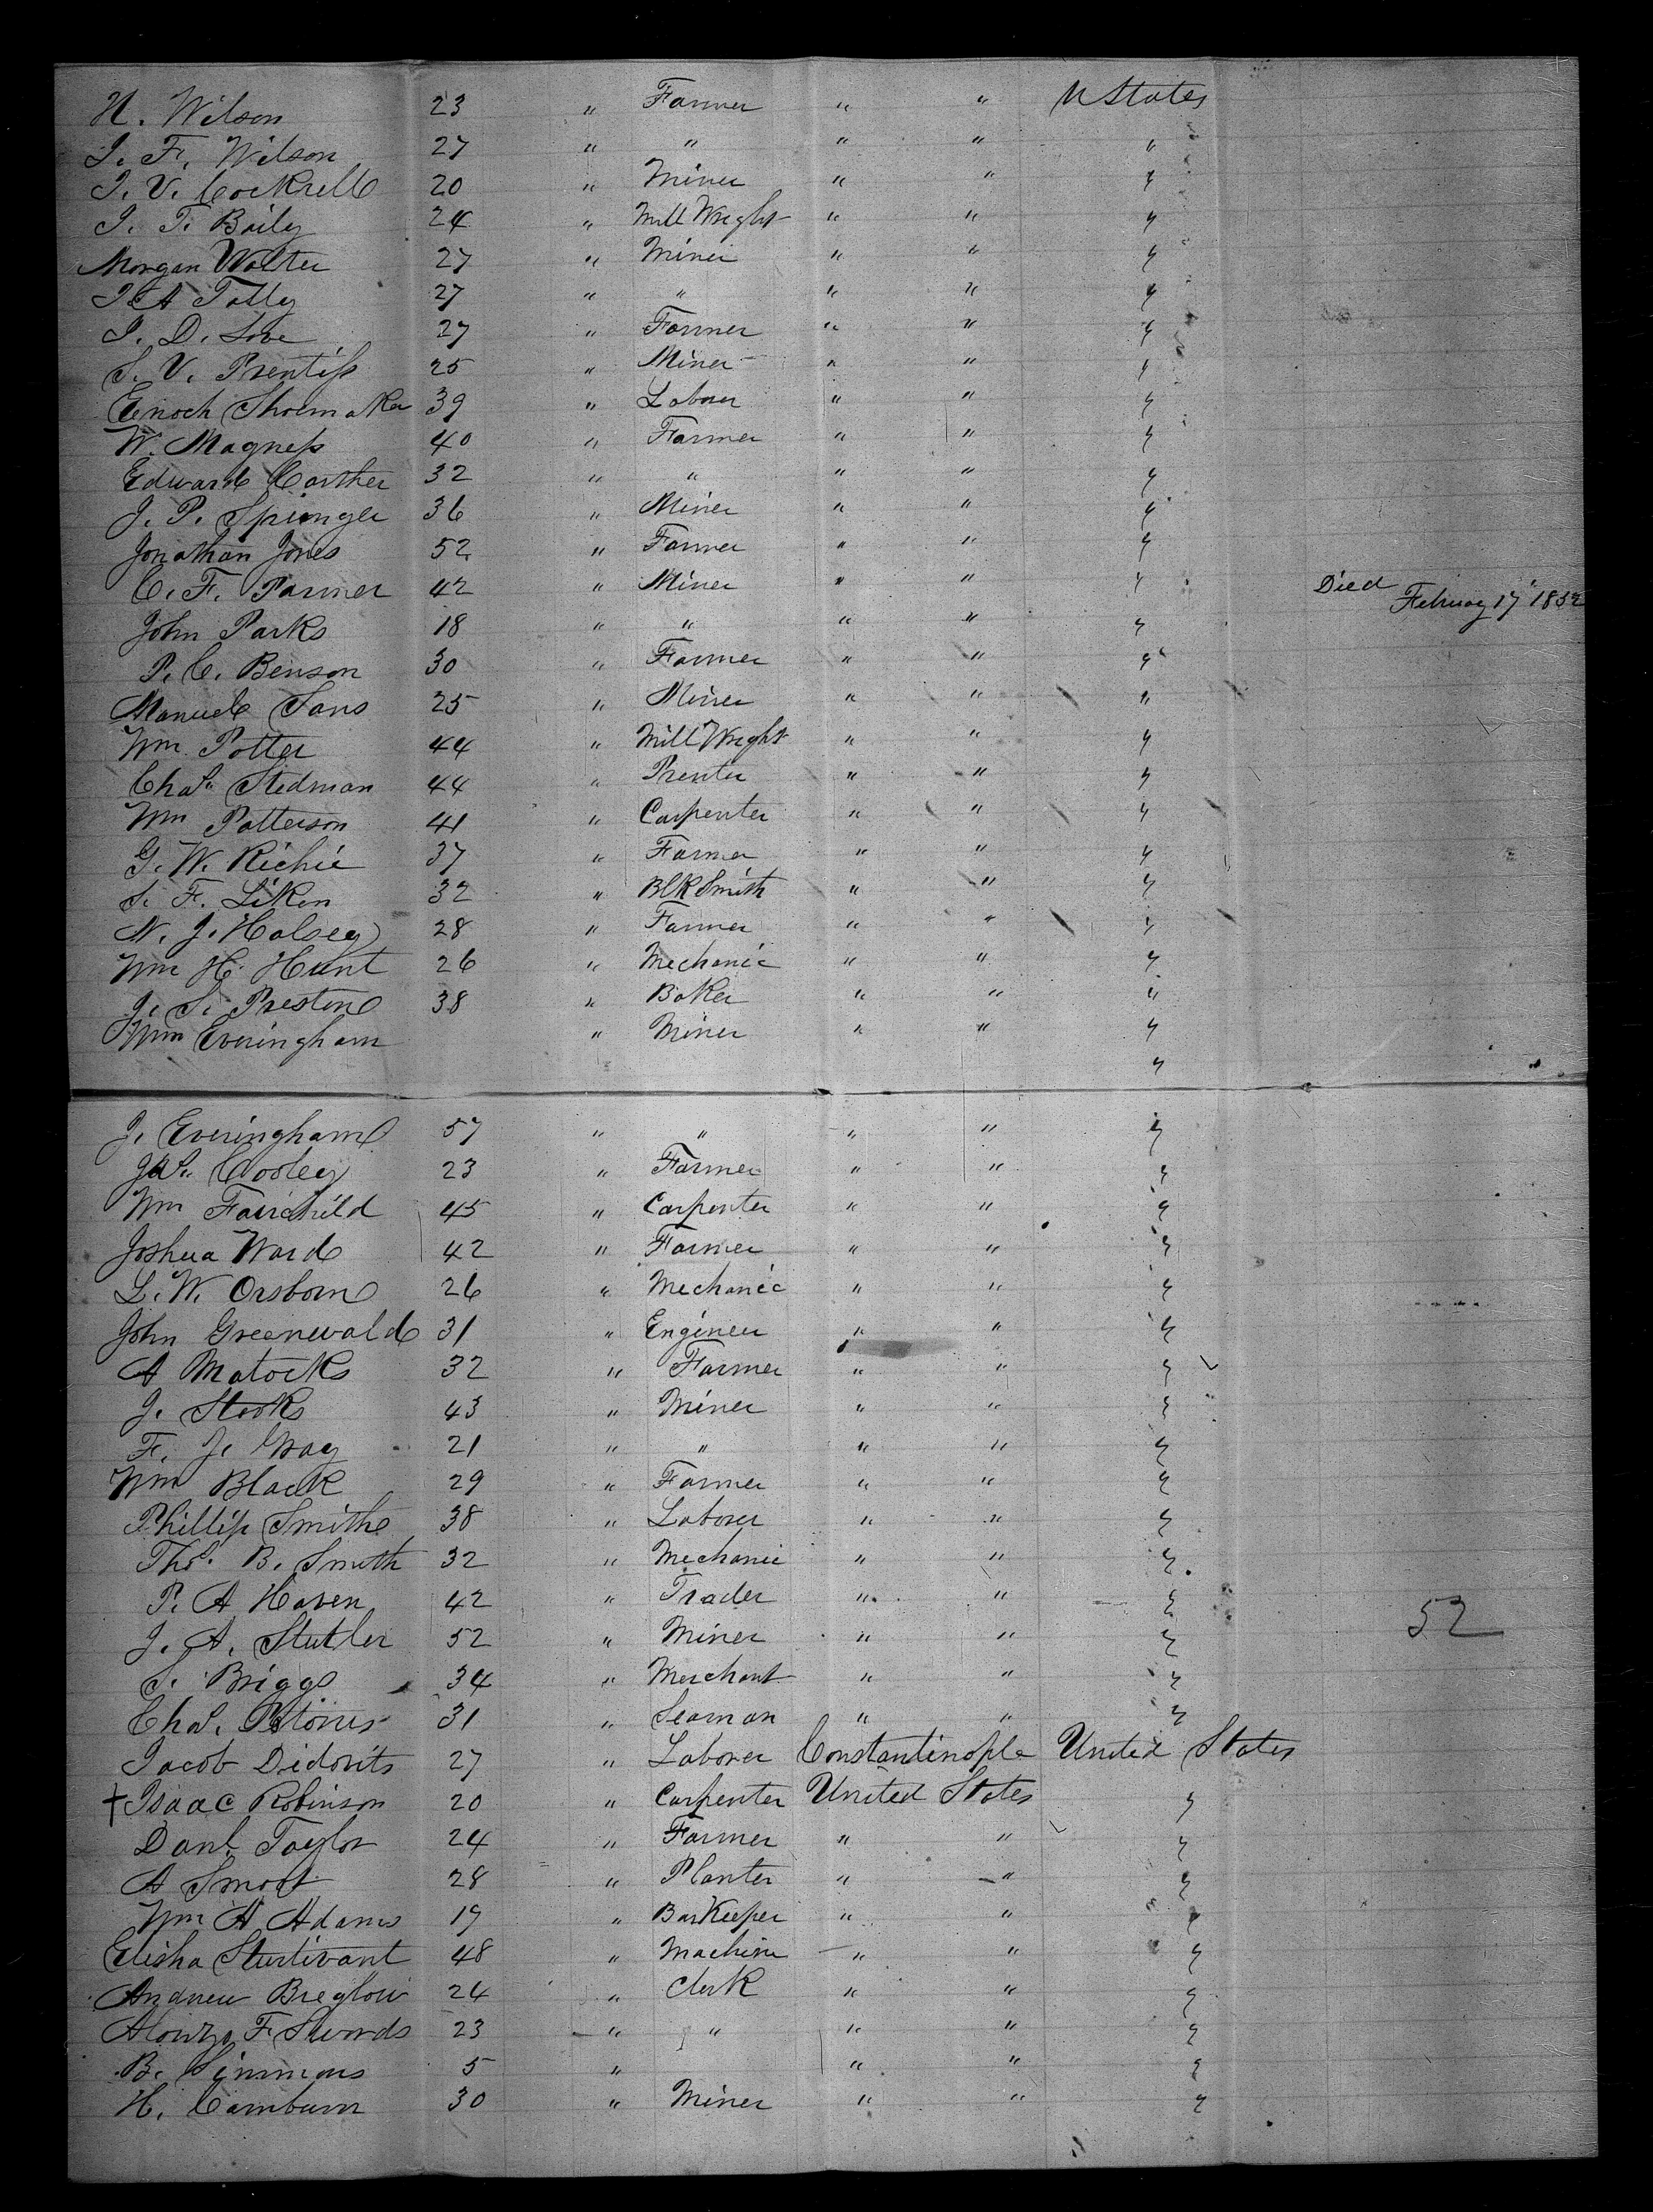 H. Wilson 23 " Farmer " " U States
J. F. Wilson 27 " " " " "
J. V. Cockrell 20 " Miner " " "
J. T. Baily 24 " Mill Wright " " "
Morgan Walter 27 " Miner " " "
J. A Tally 27 " " " " "
J. D. Love 27 " Farmer " " "
S. V. Prentiss 25 " Miner " " "
Enoch Shoemaker 39 " Laborer " " "
W. Magness 40 " Farmer " " "
Edward Carther 32 " " " " "
J. P. Springer 36 " Miner " " "
Jonathan Jones 52 " Farmer " " "
C. F. Parmer 42 " Miner " " " Died February 17" 1852
John Parks 18 " " " " "
P. C. Benson 30 " Farmer " " "
Manuel Sans 25 " Miner " " "
Wm Potter 44 " Mill Wright " " "
Chas. Stedman 44 " Prenter " " "
Wm Patterson 41 " Carpenter " " "
G. W. Richie 37 " Farmer " " "
S. F. Liken 32 " Blk Smith " " "
N. J. Halsey 28 " Farmer " " "
Wm H. Hunt 26 " Mechanic " " "
J. S. Preston 38 " Baker " " "
Wm Everingham " Miner " " "
"
J. Everingham 57 " " " " "
Jas. Cooley 23 " Farmer " " "
Wm Fairchild 45 " Carpenter " " "
Joshua Ward 42 " Farmer " " "
L. W. Orsborn 26 " Mechanic " " "
John Greenewald 31 " Engineer " " "
A Matocks 32 " Farmer " " "
J. Stooks 43 " Miner " " "
F. J. Gray 21 " " " " "
Wm Black 29 " Farmer " " "
Phillip Smith 38 " Laborer " " "
Thos. B. Smith 32 " Mechanic " " "
P. A Haven 42 " Trader " " "
J. A. Stutler 52 " Miner " " " 52
S. Briggs 34 " Merchant " " "
Chas. 31 " Seaman " " "
Jacob Didorits 27 " Laborer Constantinople United States
† Isaac Robinson 20 " Carpenter United States "
Danl. Taylor 24 " Farmer " " "
A Smoot 28 " Planter " " "
Wm A Adams 19 " Bar Keeper " " "
Elisha Sturtivant 48 " Machine " " "
Andrew Breglow 24 " Clerk " " "
Alonzo F. Swords 23 " " " " "
B. Simmons 5 " " " "
H. Camburn 30 " Miner " " "